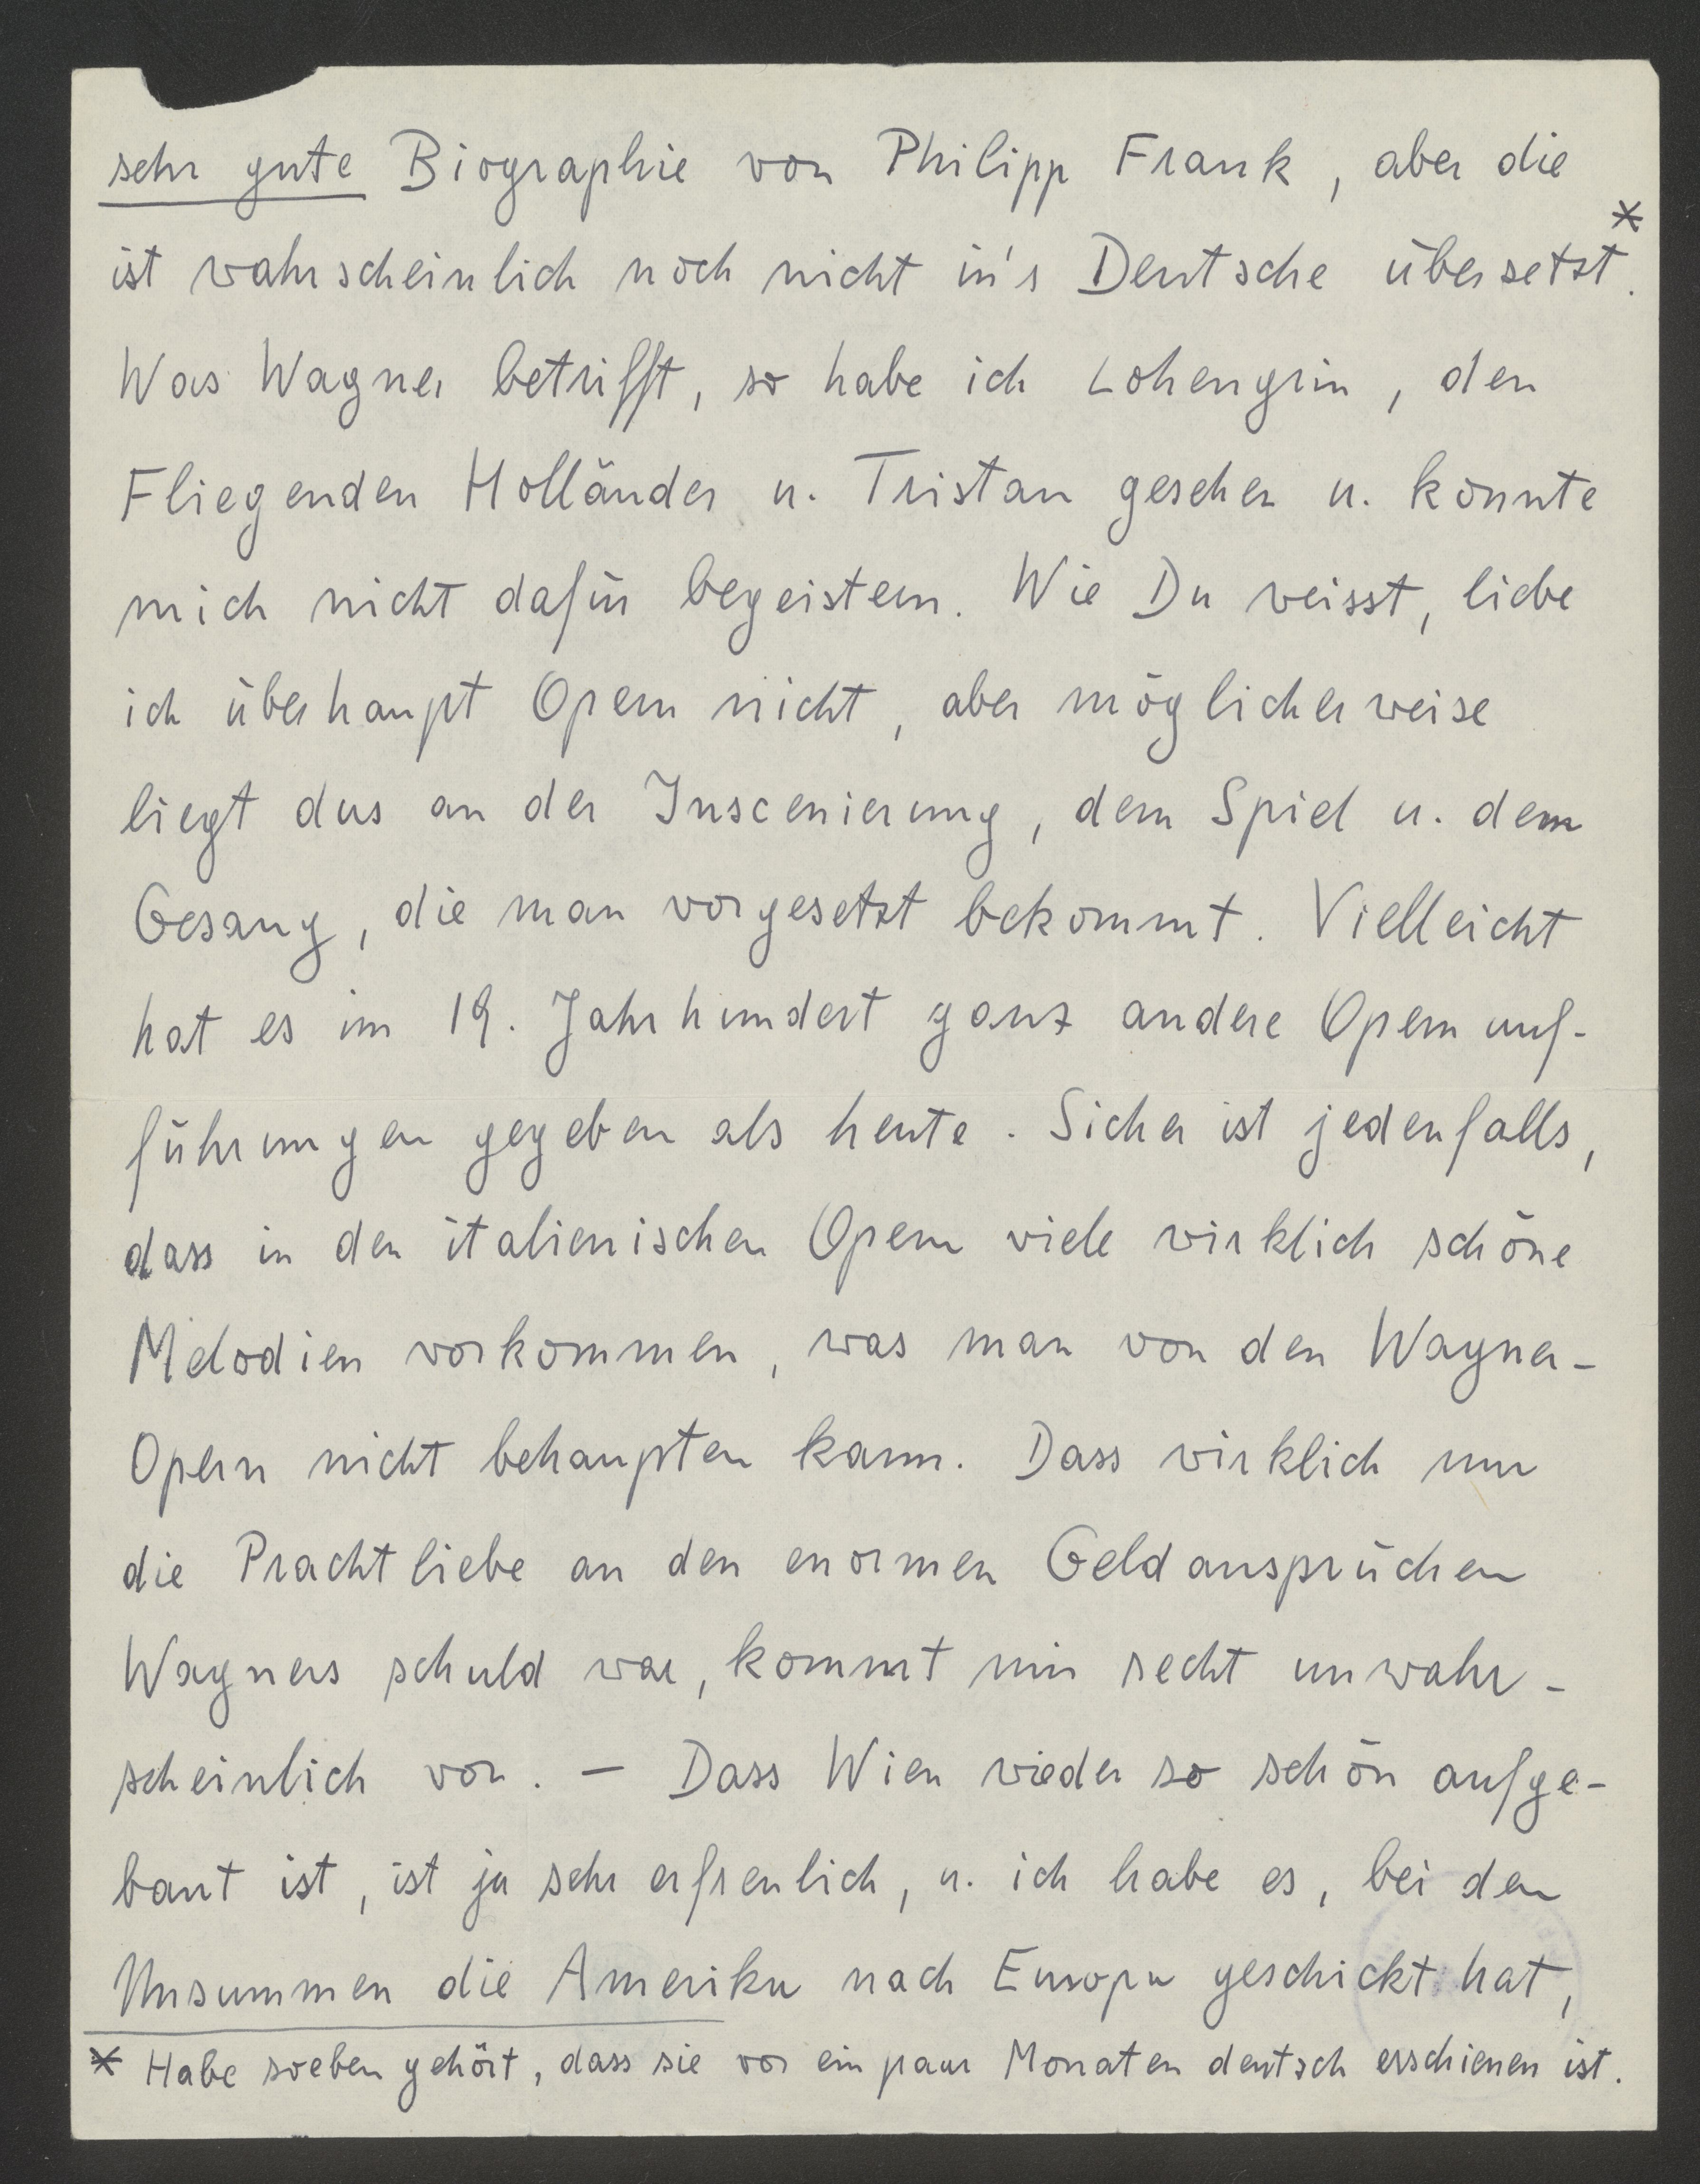 sehr gute Biographie von Philipp Frank, aber die
ist wahrscheinlich noch nicht in's Deutsche übersetzt.*
Was Wagner betrifft, so habe ich Lohengrin, den
Fliegenden Holländer u. Tristan gesehen u. konnte
mich nicht dafür begeistern. Wie Du weisst, liebe
ich überhaupt Opern nicht, aber möglicherweise
liegt das an der Inscenierung, dem Spiel u. dem
Gesang, die man vorgesetzt bekommt. Vielleicht
hat es im 19. Jahrhundert ganz andere Opernauf-
führungen gegeben als heute. Sicher ist jedenfalls,
dass in den italienischen Opern viele wirklich schöne
Melodien vorkommen, was man von den Wagner-
Opern nicht behaupten kann. Dass wirklich nur
die Prachtliebe an den enormen Geldansprüchen
Wagners schuld war, kommt mir recht unwahr-
scheinlich vor. – Dass Wien wieder so schön aufge-
baut ist, ist ja sehr erfreulich, u. ich habe es, bei den
Unsummen die Amerika nach Europa geschickt hat,
* Habe soeben gehört, dass sie vor ein paar Monaten deutsch erschienen ist.